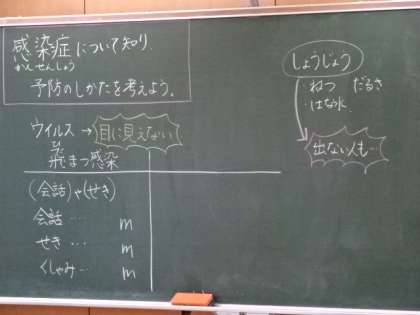 感染症について知り
かんせんしょう
予防のしかたを考えよう。
ウイルス → 目に見えない
ひ
飛まつ感染
(会話)や(せき)
会話… m
せき… m
くしゃみ… m
しょうじょう
・ねつ ・だるさ
・はな水
出ない人も…